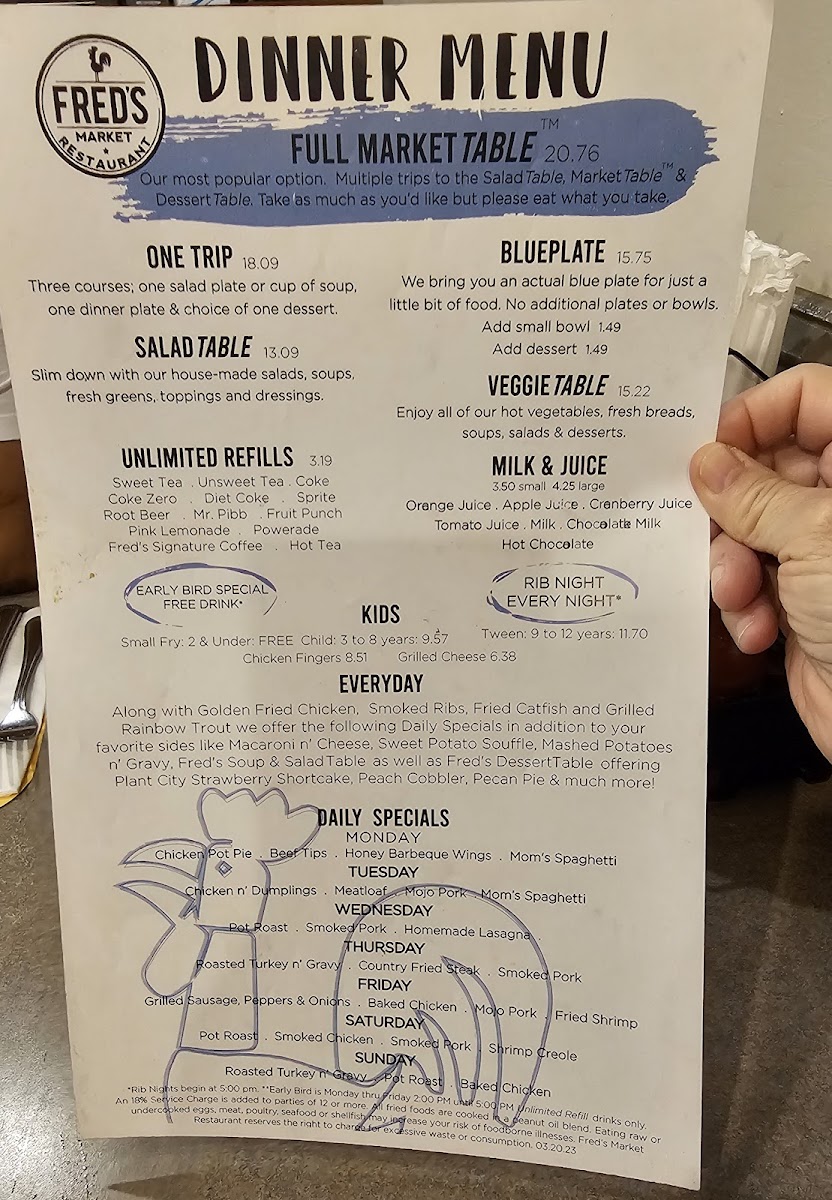 FRED'S
MARKET
RESTAURANT
DINNER MENU
FULL MARKET TABLE™ 20.76
Our most popular option. Multiple trips to the Salad Table, Market Table™ &
Dessert Table. Take as much as you'd like but please eat what you take.
ONE TRIP 18.09
Three courses; one salad plate or cup of soup,
one dinner plate & choice of one dessert.
SALAD TABLE 13.09
Slim down with our house-made salads, soups,
fresh greens, toppings and dressings.
BLUEPLATE 15.75
We bring you an actual blue plate for just a
little bit of food. No additional plates or bowls.
Add small bowl 1.49
Add dessert 1.49
VEGGIE TABLE 15.22
Enjoy all of our hot vegetables, fresh breads,
soups, salads & desserts.
UNLIMITED REFILLS 3.19
Sweet Tea . Unsweet Tea . Coke
Coke Zero . Diet Coke . Sprite
Root Beer . Mr. Pibb . Fruit Punch
Pink Lemonade . Powerade
Fred's Signature Coffee . Hot Tea
MILK & JUICE
3.50 small 4.25 large
Orange Juice . Apple Juice . Cranberry Juice
Tomato Juice . Milk . Chocolate Milk
Hot Chocolate
EARLY BIRD SPECIAL
FREE DRINK*
RIB NIGHT
EVERY NIGHT*
KIDS
Small Fry: 2 & Under: FREE Child: 3 to 8 years: 9.57 Tween: 9 to 12 years: 11.70
Chicken Fingers 8.51 Grilled Cheese 6.38
EVERYDAY
Along with Golden Fried Chicken, Smoked Ribs, Fried Catfish and Grilled
Rainbow Trout we offer the following Daily Specials in addition to your
favorite sides like Macaroni n' Cheese, Sweet Potato Souffle, Mashed Potatoes
n' Gravy, Fred's Soup & SaladTable as well as Fred's DessertTable offering
Plant City Strawberry Shortcake, Peach Cobbler, Pecan Pie & much more!
DAILY SPECIALS
MONDAY
Chicken Pot Pie . Beef Tips . Honey Barbeque Wings . Mom's Spaghetti
TUESDAY
Chicken n' Dumplings . Meatloaf . Mojo Pork . Mom's Spaghetti
WEDNESDAY
Pot Roast . Smoked Pork . Homemade Lasagna .
THURSDAY
Roasted Turkey n' Gravy . Country Fried Steak . Smoked Pork
FRIDAY
Grilled Sausage, Peppers & Onions . Baked Chicken . Mojo Pork . Fried Shrimp
SATURDAY
Pot Roast . Smoked Chicken . Smoked Pork . Shrimp Creole
SUNDAY
Roasted Turkey n' Gravy . Pot Roast . Baked Chicken
*Rib Nights begin at 5:00 pm. **Early Bird is Monday thru Friday 2:00 PM until 5:00 PM Unlimited Refill drinks only.
An 18% Service Charge is added to parties of 12 or more. All fried foods are cooked in a peanut oil blend. Eating raw or
undercooked eggs, meat, poultry, seafood or shellfish may increase your risk of foodborne illnesses. Fred's Market
Restaurant reserves the right to charge for excessive waste or consumption. 03.20.23